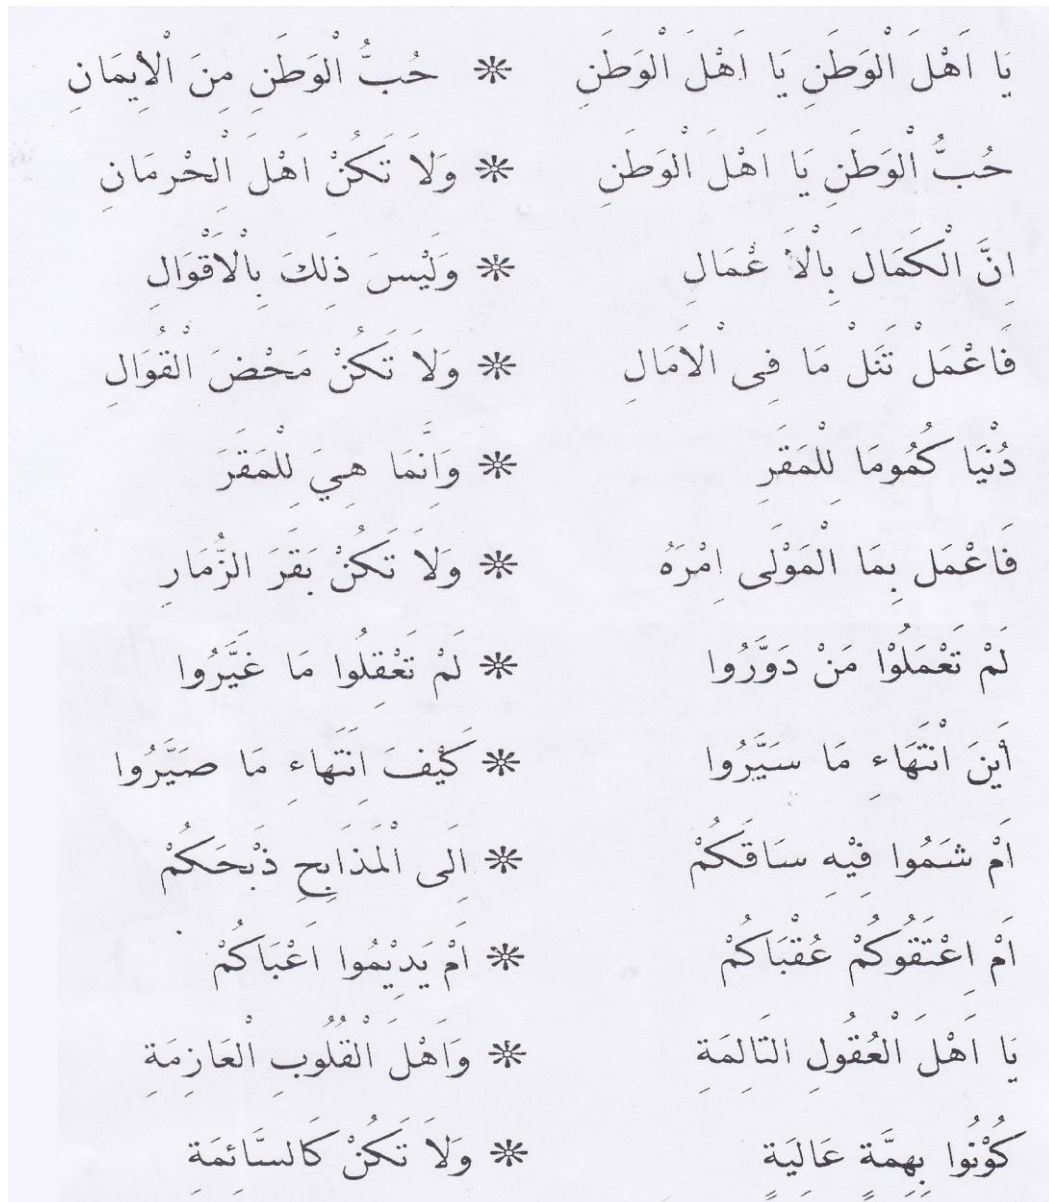 يَا اَهْلَ الْوَطَنِ يَا اَهْلَ الْوَطَنِ ❊ حُبُّ الْوَطَنِ مِنَ الْاِيمَانِ
حُبُّ الْوَطَنِ يَا اَهْلَ الْوَطَنِ ❊ وَلاَ تَكُنْ اَهْلَ الْحْرمَانِ
اِنَّ الْكَمَالَ بِالْاَ عْمَالِ ❊ وَلَيْسَ ذَلِكَ بِالْاَقْوَالِ
فَاعْمَلْ تَنَلْ مَا فِى الْاَمَالِ ❊ وَلاَ تَكُنْ مَحْضَ الْقُوَالِ
دُنْيَا كُمُومَا لِلْمَقَرِ ❊ وَاِنَّمَا هِيَ لِلْمَقَرَ
فَاعْمَل بِمَا الْمَوْلَى اِمْرَهُ ❊ وَلاَ تَكُنْ بَقَرَ الزُّمَارِ
لَمْ تَعْمَلُوْا مَنْ دَوَّرُوا ❊ لَمْ تَعْقِلُوا مَا غَيَّرُوا
أَيْنَ انْتَهَاءِ مَا سَيَّرُوا ❊ كَيْفَ اِنْتَهَاءِ مَا صَيَّرُوا
اَمْ شَمُوا فِيْهِ سَاقَكُمْ ❊ اِلَى الْمَذَابِحِ ذَبْحَكُمْ
اَمْ اِعْتَقُوكُمْ عُقْبَاكُمْ ❊ اَمْ يَدِيْمُوا اَعْبَاكُمْ
يَا اَهْلَ الْعُقُولِ التَالِمَةِ ❊ وَاَهْلَ الْقُلُوبِ الْعَازِمَةِ
كُوْنُوا بِهِمَّةٍ عَالِيَةٍ ❊ وَلاَ تَكُنْ كَالسَّائِمَةِ